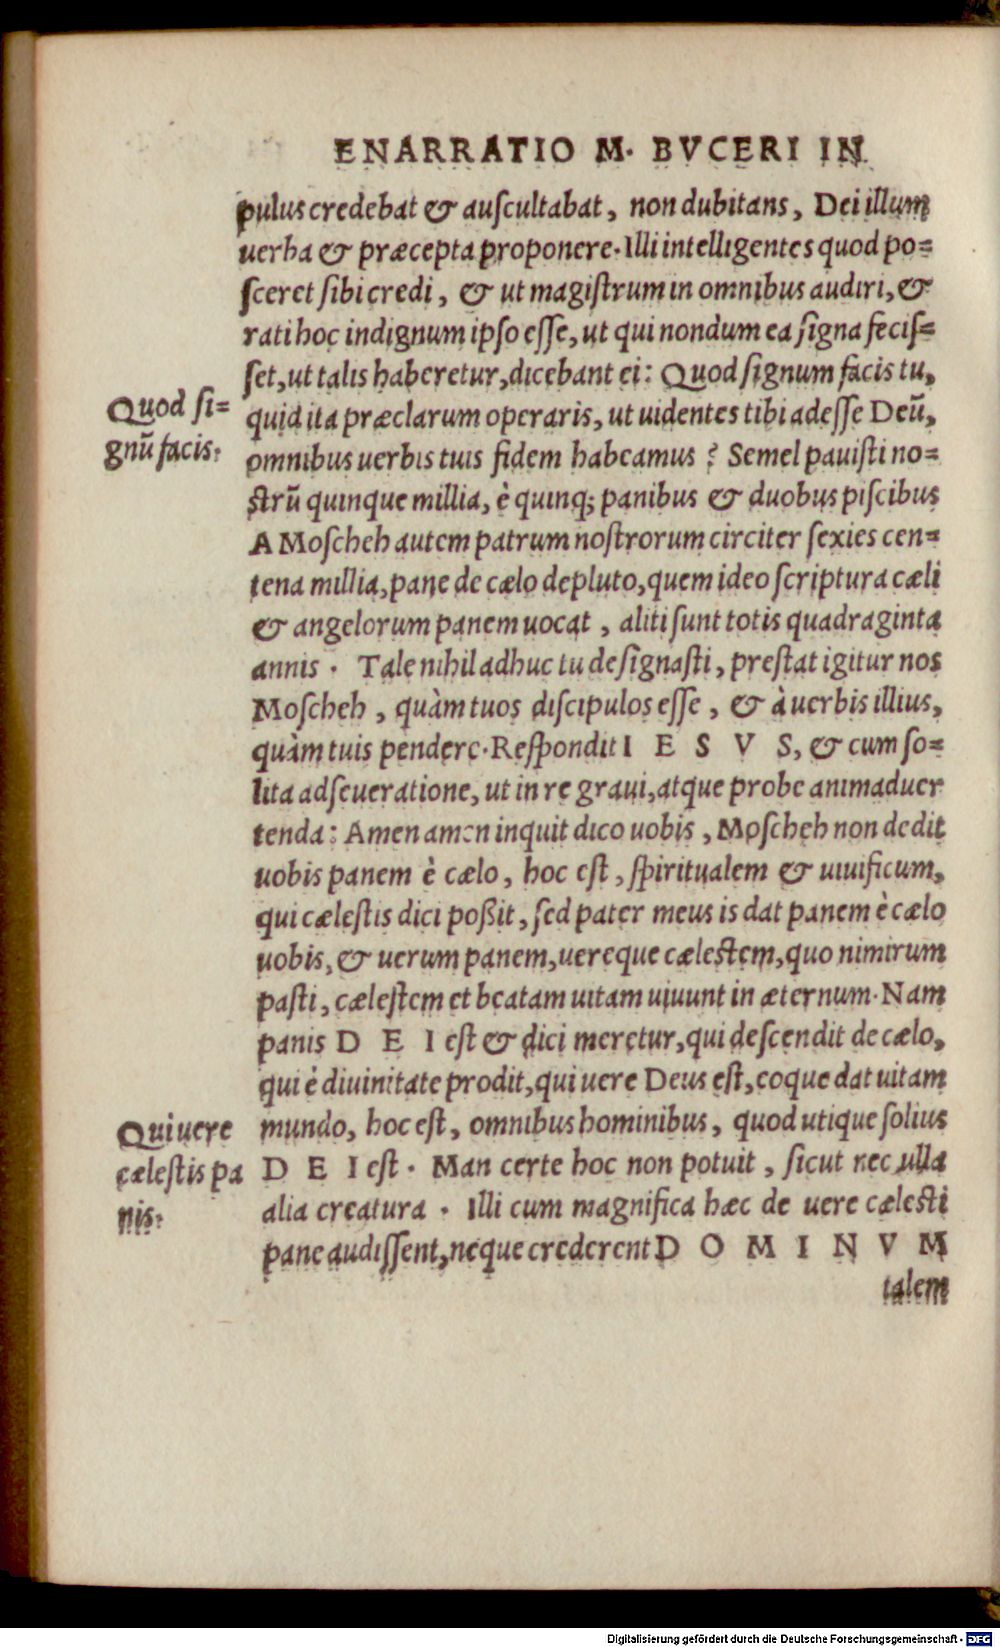 ENARRATIO M. BVCERI IN
pulus credebat & auſcultabat, non dubitans, Dei illum
uerba & præcepta proponere. Illi intelligentes quod po=
ſceret ſibi credi, & ut magiſtrum in omnibus audiri, &
rati hoc indignum ipſo eſſe, ut qui nondum ea ſigna feciſ=
ſet, ut talis haberetur, dicebant ei: Quod ſignum facis tu,
Quod ſi=
gnū facis:
quid ita præclarum operaris, ut uidentes tibi adeſſe Deū,
omnibus uerbis tuis fidem habeamus? Semel pauiſti no=
ſtrū quinque millia, è quinq; panibus & duobus piſcibus
A Moſcheh autem patrum noſtrorum circiter ſexies cen=
tena millia, pane de cælo depluto, quem ideo ſcriptura cæli
& angelorum panem uocat, aliti ſunt totis quadraginta
annis. Tale nihil adhuc tu deſignaſti, preſtat igitur nos
Moſcheh, quàm tuos diſcipulos eſſe, & à uerbis illius,
quàm tuis pendere. Reſpondit I E S V S, & cum ſo=
lita adſeueratione, ut in re graui, atque probe animaduer
tenda: Amen amen inquit dico uobis, Moſcheh non dedit
uobis panem è cælo, hoc eſt, ſpiritualem & uiuificum,
qui cæleſtis dici poßit, ſed pater meus is dat panem è cælo
uobis, & uerum panem, uereque cæleſtem, quo nimirum
paſti, cæleſtem et beatam uitam uiuunt in æternum. Nam
panis D E I eſt & dici meretur, qui deſcendit de cælo,
qui è diuinitate prodit, qui uere Deus eſt, eoque dat uitam
mundo, hoc eſt, omnibus hominibus, quod utique ſolius
Qui uere
cæleſtis pa
nis:
D E I eſt. Man certe hoc non potuit, ſicut nec ulla
alia creatura. Illi cum magnifica hæc de uere cæleſti
pane audiſſent, neque crederent D O M I N V M
talem
Digitalisierung gefördert durch die Deutsche Forschungsgemeinschaft - DFG